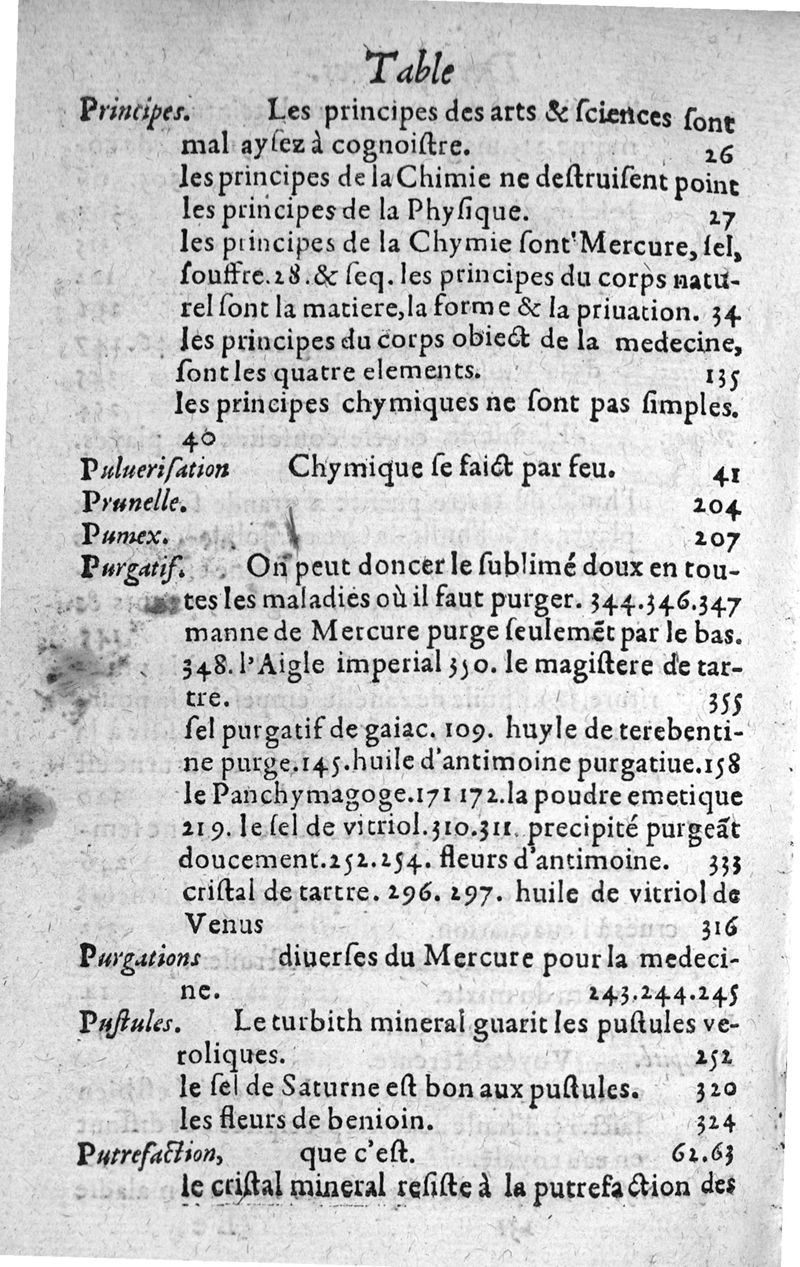 Table
Principes. Les principes des arts & ſciences ſont
mal ayſez à cognoiſtre. 26
les principes de la Chimie ne deſtruiſent point
les principes de la Phyſique. 27
les principes de la Chymie ſont Mercure, ſel,
ſouffre.28.& ſeq. les principes du corps natu-
rel ſont la matiere, la forme & la priuation. 34
les principes du corps obiect de la medecine,
ſont les quatre elements. 135
les principes chymiques ne ſont pas ſimples.
40
Pulueriſation Chymique ſe faict par feu. 41
Prunelle. 204
Pumex. 207
Purgatif. On peut doncer le ſublimé doux en tou-
tes les maladies où il faut purger. 344.346.347
manne de Mercure purge ſeulemẽt par le bas.
348. l'Aigle imperial 350. le magiſtere de tar-
tre. 355
ſel purgatif de gaiac. 109. huyle de terebenti-
ne purge.145.huile d'antimoine purgatiue.158
le Panchymagoge.171 172.la poudre emetique
219. le ſel de vitriol.310.311. precipité purgeãt
doucement.252.254. fleurs d'antimoine. 333
criſtal de tartre. 296. 297. huile de vitriol de
Venus 316
Purgations diuerſes du Mercure pour la medeci-
ne. 243.244.245
Puſtules. Le turbith mineral guarit les puſtules ve-
roliques. 252
le ſel de Saturne eſt bon aux puſtules. 320
les fleurs de benioin. 324
Putrefaction, que c'eſt. 62.63
le criſtal mineral reſiſte à la putrefaction des